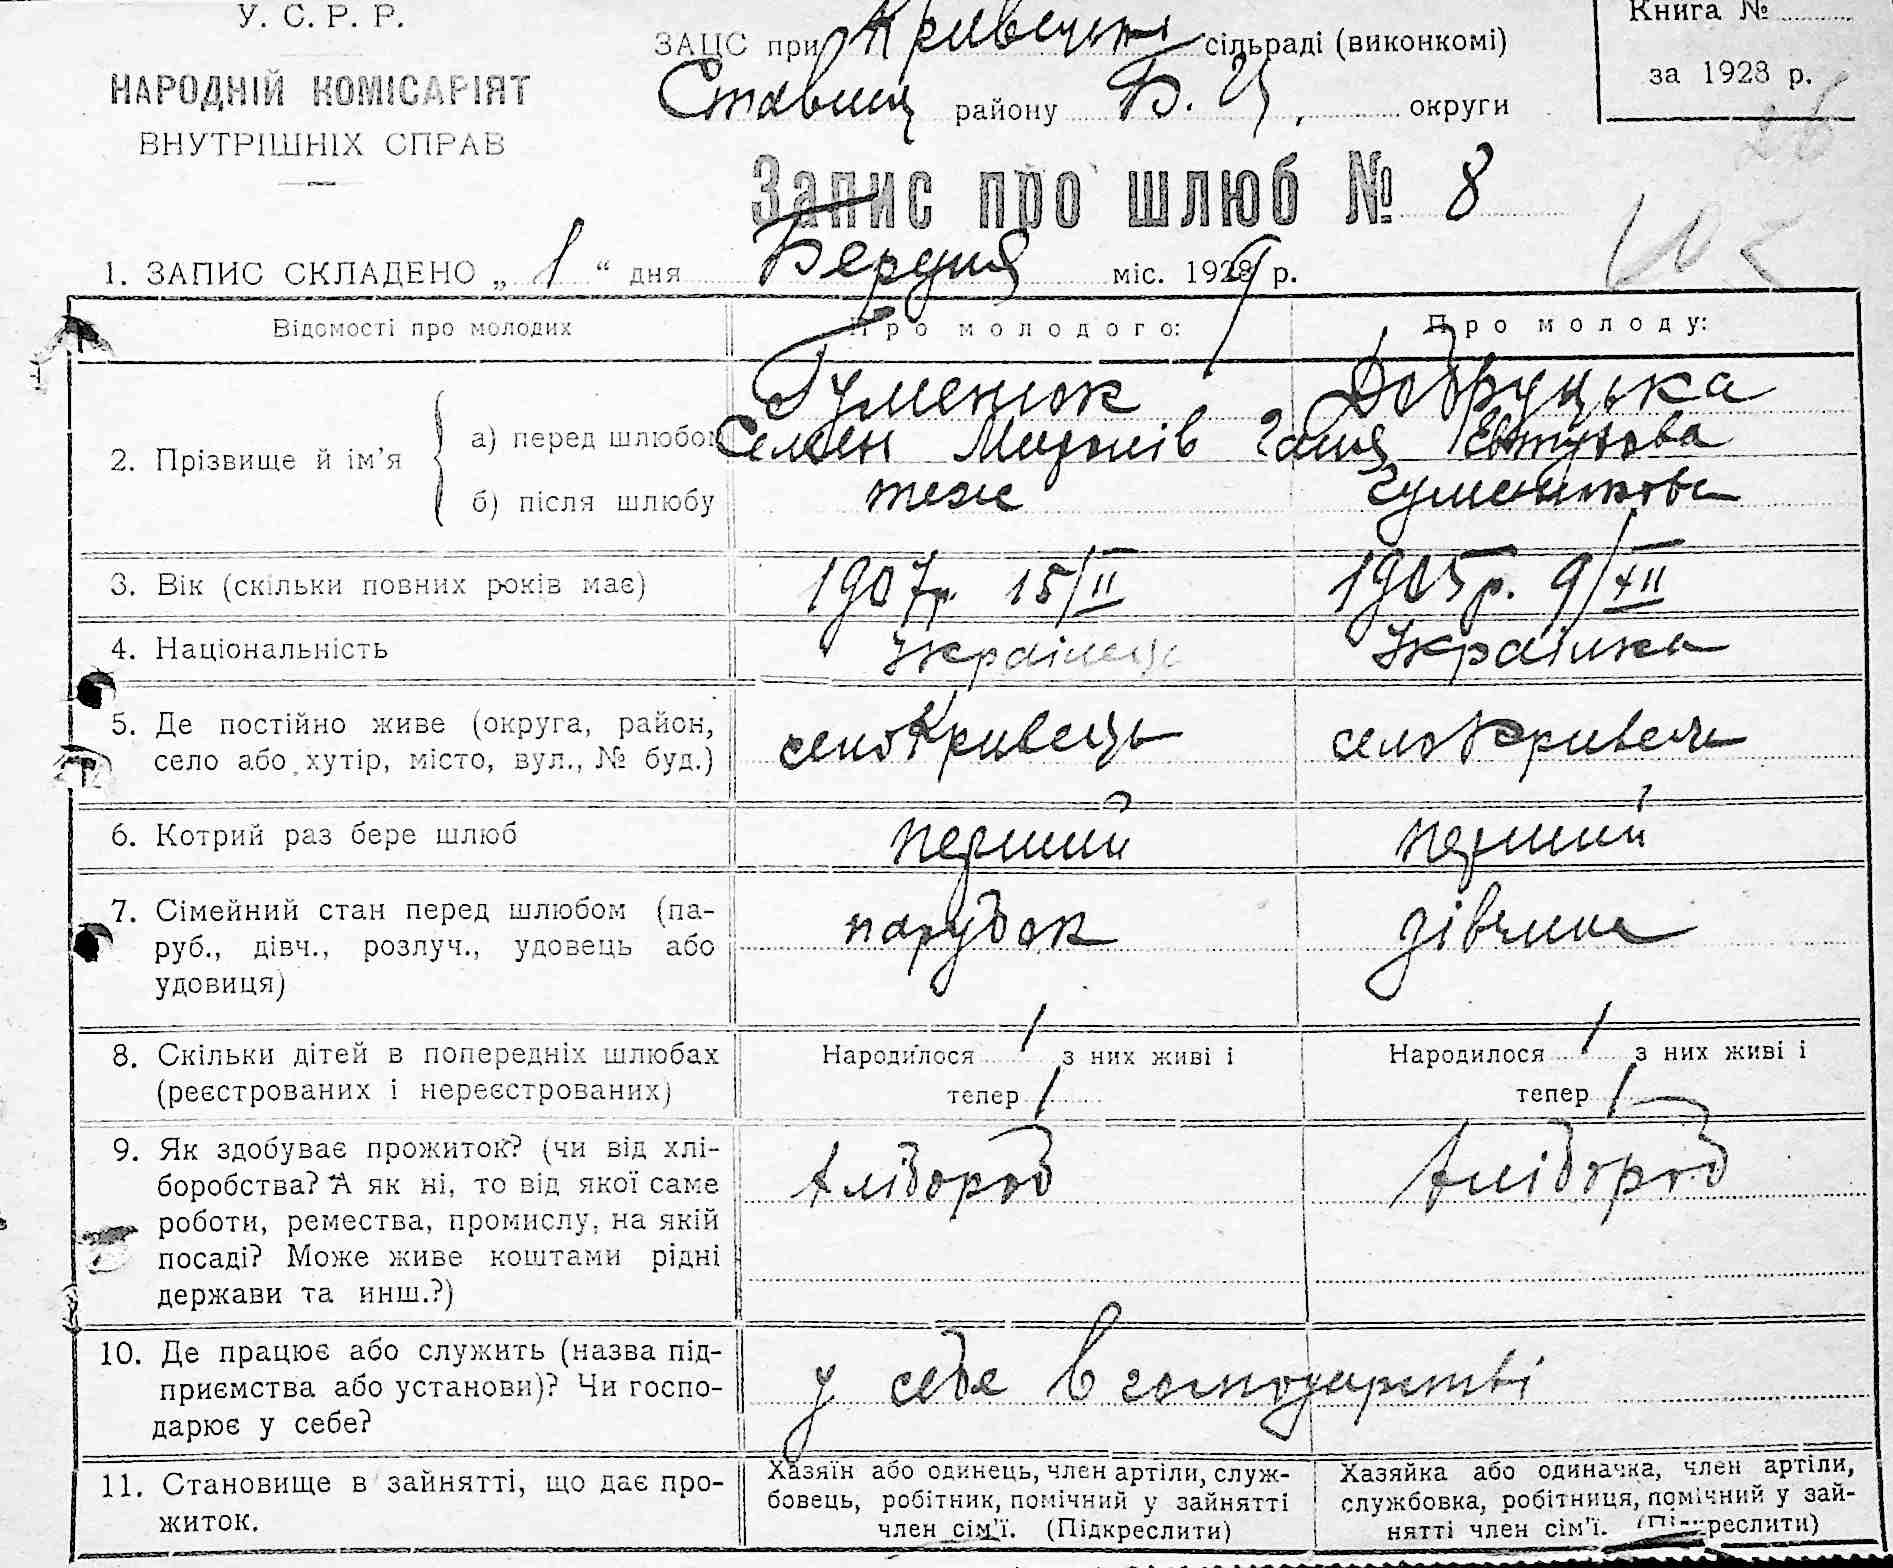 У. С. Р. Р.
НАРОДНІЙ КОМІСАРІЯТ
ВНУТРІШНІХ СПРАВ
ЗАЦС при Кривецькі сільраді (виконкомі)
Ставищ району Б. Ц. округи
Книга №
за 1928 р.
26
Запис про шлюб № 8
1. ЗАПИС СКЛАДЕНО „ 1 “ дня Березня міс. 1929 р.
Відомості про молодих
Про молодого:
Про молоду:
2. Прізвище й ім’я
а) перед шлюбом
Гуменюк
Семен Миронів
Добруцька
Ганя Євтухова
б) після шлюбу
теж
Гуменюкова
3. Вік (скільки повних років має)
1907р. 15/II
1905р. 9/XII
4. Національність
Українець
Українка
5. Де постійно живе (округа, район,
село або хутір, місто, вул., № буд.)
село Кривець
село Кривець
6. Котрий раз бере шлюб
перший
перший
7. Сімейний стан перед шлюбом (па-
руб., дівч., розлуч., удовець або
удовиця)
парубок
дівчина
8. Скільки дітей в попередніх шлюбах
(реєстрованих і нереєстрованих)
Народилося / з них живі і
тепер /
Народилося / з них живі і
тепер /
9. Як здобуває прожиток? (чи від хлі-
боробства? А як ні, то від якої саме
роботи, ремества, промислу, на якій
посаді? Може живе коштами рідні
держави та инш.?)
хлібороб
хлібороб
10. Де працює або служить (назва під-
приємства або установи)? Чи госпо-
дарює у себе?
у себе в господарстві
11. Становище в зайнятті, що дає про-
житок.
Хазяїн або одинець, член артіли, служ-
бовець, робітник, помічний у зайнятті
член сім’ї. (Підкреслити)
Хазяйка або одиначка, член артіли,
службовка, робітниця, помічний у зай-
нятті член сім’ї. (Підкреслити)